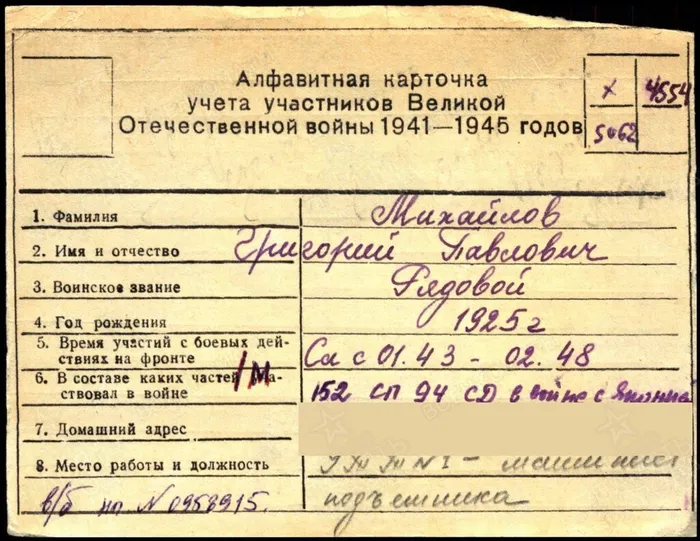 Алфавитная карточка
учета участников Великой
Отечественной войны 1941—1945 годов
х 4554
5062
1. Фамилия Михайлов
2. Имя и отчество Григорий Павлович
3. Воинское звание Рядовой
4. Год рождения 1925 г
5. Время участий с боевых дей-
ствиях на фронте Са с 01.43 - 02.48
6. В составе каких частей /М ча-
ствовал в войне 152 сп 94 СД в войне с Японией
7. Домашний адрес
8. Место работы и должность машинист
в/б нп. N 0958915. подъемника